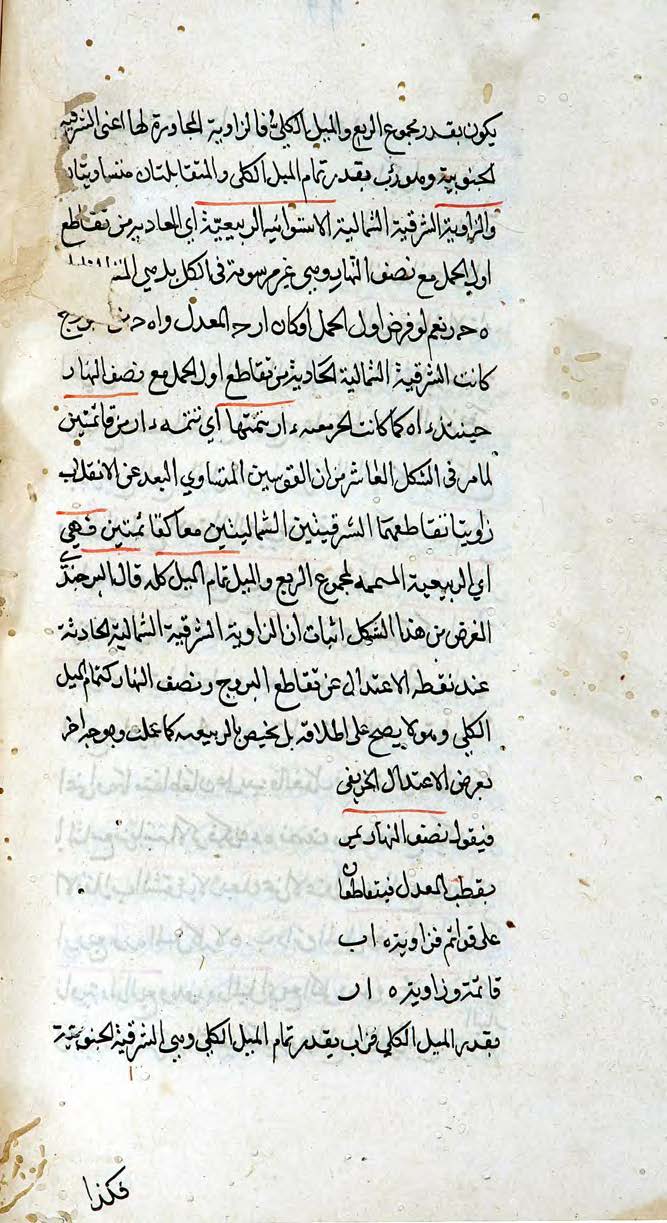 يكون بقدر مجموع الربع والميل الكلي فالزاوية المجاورة لها اعنى الشرقية
الجنوبية وهو رب بقدر تمام الميل الكلى والمتقابلتان متساويتان
والزاوية الشرقية الشمالية الاستوائية الربيعية اي الحادثة من تقاطع
اول الحمل مع نصف النهار وهى غير مرسومة فى الكل بل هي
نعم لو فرض اول الحمل ا وكان ا ر ح المعدل و ا ه ح
كانت الشرقية الشمالية الحادثة من تقاطع اول الحمل مع نصف النهار
حينئذ ء ا ه كما كانت ء ا ر تتمتها اي تتمة ه ء ا ر من قائمتين
لما مر فى الشكل العاشر من ان القوسين المتساوي البعد عن الانقلاب
زاويتا تقاطعهما الشرقيتين الشماليتين معا كقائمتين فهي
اي الربيعية المتممة لمجموع الربع والميل تمام الميل كله قال البرجندي
الغرض من هذا الشكل اثبات ان الزاوية الشرقية الشمالية الحادثة
عند نقطة الاعتدال عن تقاطع البروج ونصف النهار كتمام الميل
الكلى وهو لا يصح على اطلاقه بل يخص بالربيعية كما علمت وبوجه اخر
بعرض الاعتدال الخريفى
فيقول نصف النهار يمر
بقطب المعدل فيتقاطعان
على قوائم فزاوية ه ا ب
قائمة وزاوية ه ا ر
بقدر الميل الكلى فر ا ب بقدر تمام الميل الكلي وهى الشرقية الجنوبية
فكذا